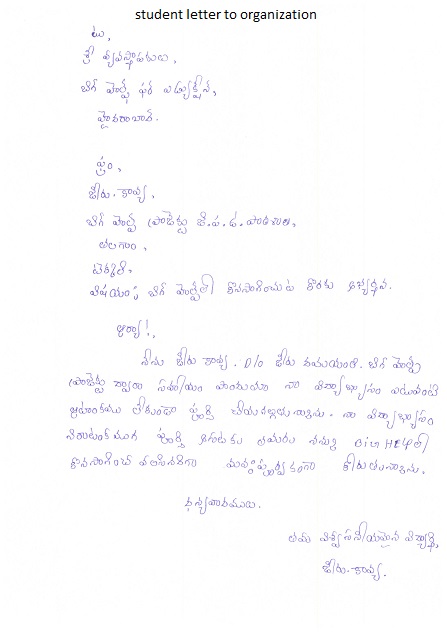 student letter to organization
టు,
శ్రీ వ్యవస్థాపకులు,
బిగ్ హెల్ప్ ఫర్ ఎడ్యుకేషన్,
హైదరాబాద్.
ఫ్రం,
జీరు. కావ్య,
బిగ్ హెల్ప్ ప్రాజెక్టు జి.ప.ఉ. పాఠశాల,
విషయం: బిగ్ హెల్ప్‌లో కొనసాగించుట కొరకు అభ్యర్థన.
ఆర్యా!,
నేను జీరు కావ్య. D/o జీరు బిగ్ హెల్ప్
ప్రాజెక్టు ద్వారా సహాయం పొందుతూ నా విద్యాభ్యాసం ఎటువంటి
ఆటంకము లేకుండా పూర్తి చేయగల్గుతున్నాను. నా విద్యాభ్యాసం
పూర్తి అగుటకు తమరు నన్ను BIGHELPలో
కొనసాగించ వలసినదిగా మనస్ఫూర్తికంగా కోరుతున్నాను.
ధన్యవాదములు.
తమ విశ్వసనీయమైన విద్యార్థి,
జీరు. కావ్య.